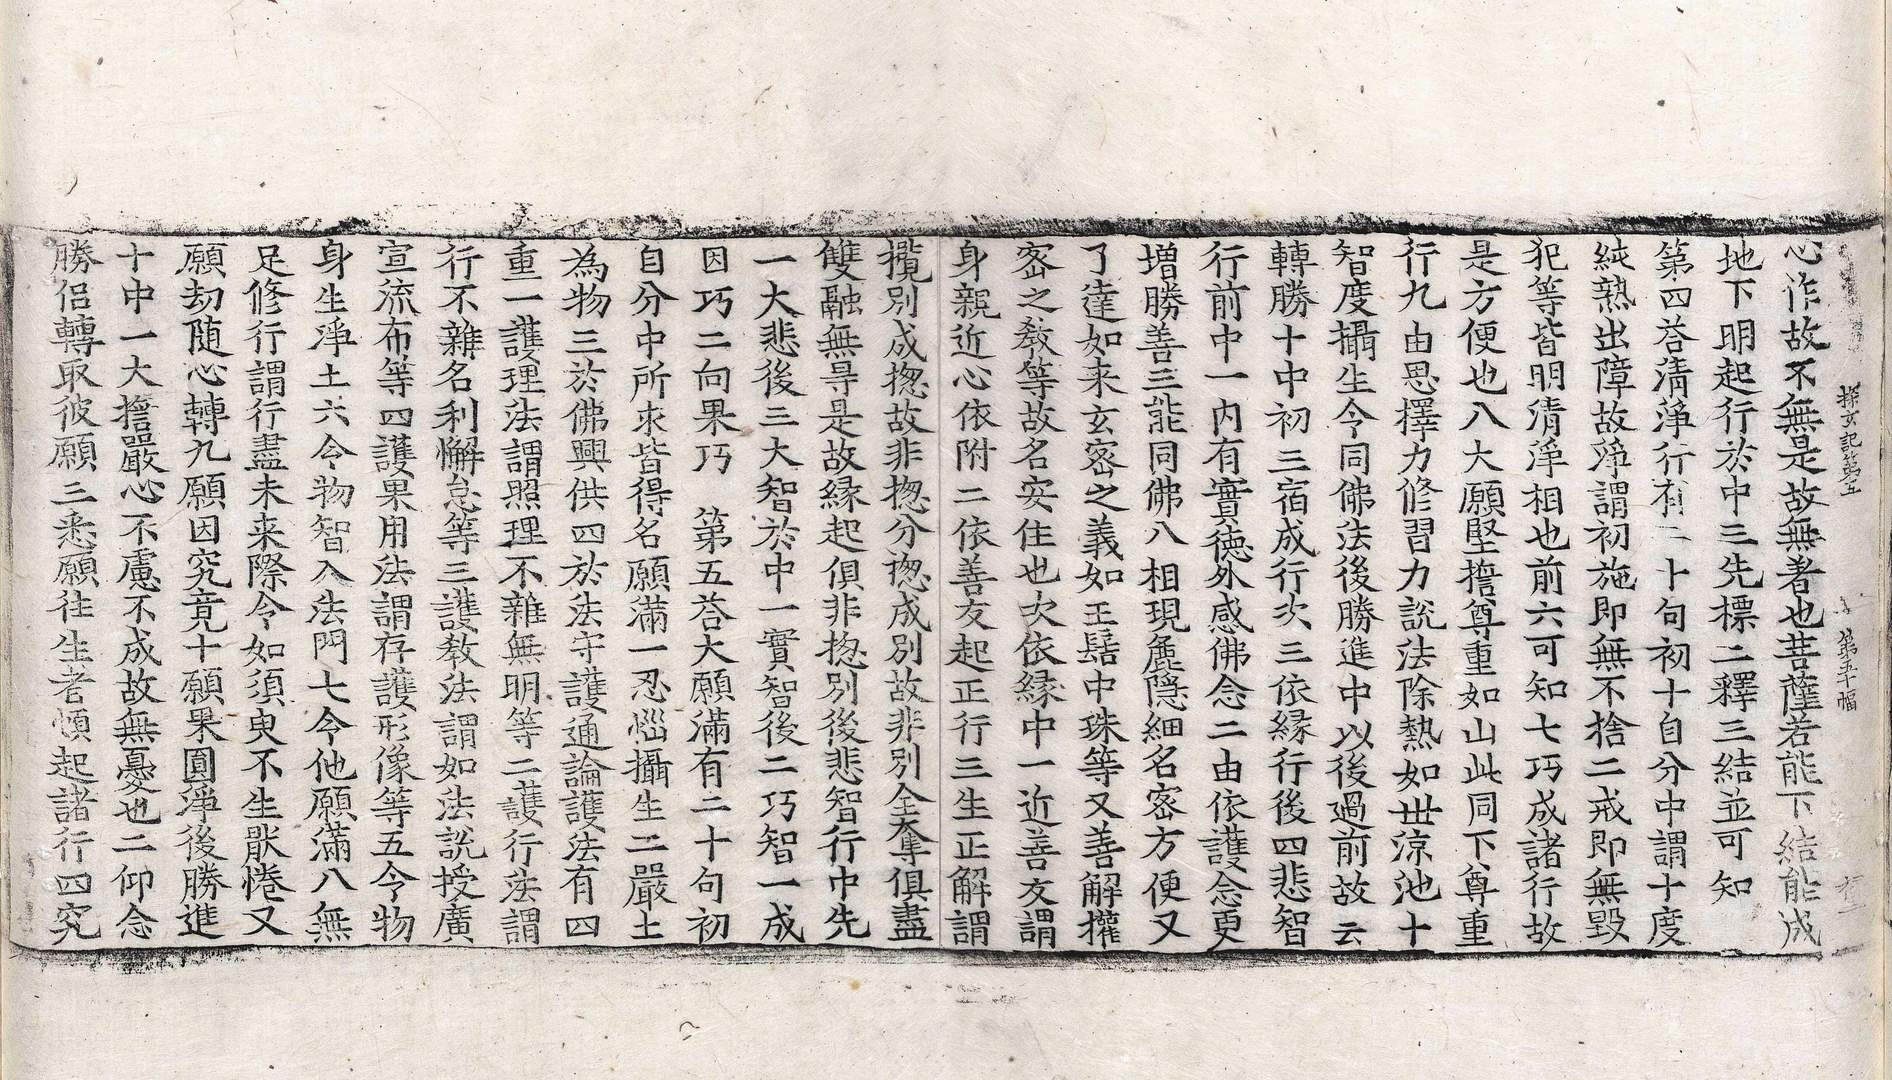 探玄記第五　第五十幅
心作故不無是故無著也菩薩若能下結能成
地下明起行於中三先標二釋三結並可知
第四荅清淨行有二十句初十自分中謂十度
純熟出障故淨謂初施即無不捨二戒即無毀
犯等皆明清淨相也前六可知七巧成諸行故
是方便也八大願堅擔尊重如山此同下尊重
行九由思擇力修習力說法除熱如世涼池十
智度攝生令同佛法後勝進中以後過前故云
轉勝十中初三宿成行次三依縁行後四悲智
行前中一內有實德外感佛念二由依護念更
增勝善三能同佛八相現麁隱細名宻方便又
了達如来玄宻之義如王髻中珠等又善解權
宻之教等故名安住也次依縁中一近善友謂
身親近心依附二依善友起正行三生正解謂
攬別成揔故非揔分揔成別故非別全奪俱盡
雙融無㝵是故縁起俱非揔別後悲智行中先
一大悲後三大智於中一實智後二巧智一成
因巧二向果巧　第五荅大願滿有二十句初
自分中所求皆得名願滿一忍惱攝生二嚴土
為物三於佛興供四於法守護通論護法有四
重一護理法謂照理不雜無明等二護行法謂
行不雜名利懈怠等三護教法謂如法說授廣
宣流布等四護果用法謂存護形像等五令物
身生淨土六令物智入法門七令他願滿八無
足修行謂行盡未来際令如須臾不生猒惓又
願劫随心轉九願因究竟十願果圓淨後勝進
十中一大擔嚴心不慮不成故無憂也二仰念
勝侣轉取彼願三悉願往生者頓起諸行四究